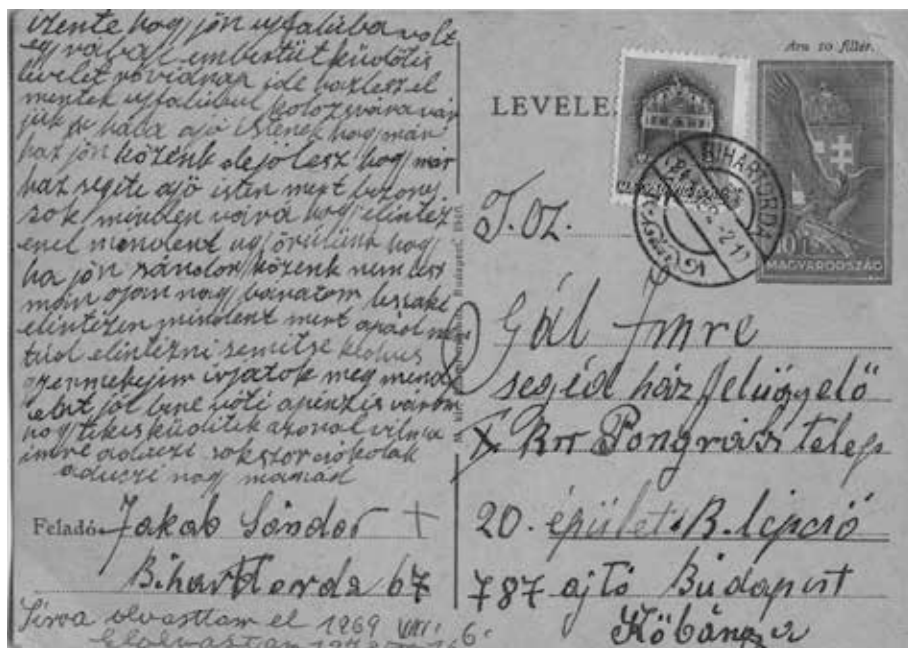 izente hogy jön ujfaluba volt
egy rabal embertül küdötis
levelet rövidnan ide hazleszel
mentek ujfalubul kolozsvára vár
juk hála ajó istenek hogy már
haz jön közénk dejólesz hogy már
haz segite ajó isten mert bizony
sok minden várá hogy elintéz
enel mendent ugy örülünk hogy
ha jön sándor közénk nem lesz
mán ojan nagy bánatom
elintézen mindent mert apád
tud elintézni semitse kedves
gyermekejim irjatok meg mind
jól lene apenzis várom
hogy tikis küditek azonal vilma
imre aduczi sokszor csókolak
aduczi nagy mamád
Feladó: Jakab Sándor
Bihartorda 67
Sirva olvastam el 1969 VIII. 6.
Elolvastam
Ára 10 fillér.
LEVELE
BIHARTORDA
10
MAGYARORSZÁG
T. Oz.
Gál Imre
segéd ház felügyelő
X Ker Pongrász telep
20. épület B. lépcső
787 ajtó Budapest
Kőbánya